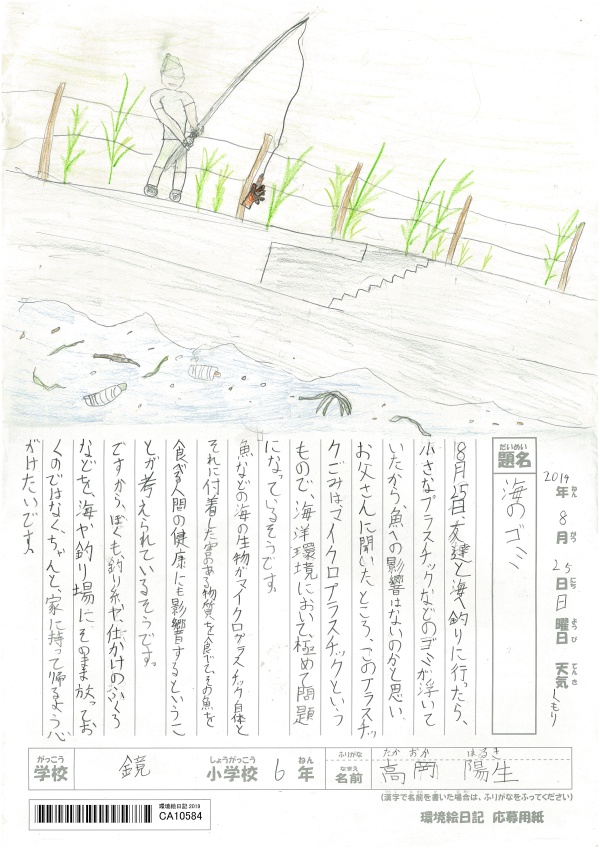 2019年ねん 8月がつ 25日にち 日曜日ようび 天気てんき くもり
だいめい
題名
海のゴミ
8月25日、友達と海へ釣りに行ったら、
小さなプラスチックなどのゴミが浮いて
いたから、魚への影響はないのかと思い
お父さんに聞いたところ、このプラスチッ
クごみはマイクロプラスチックという
もので、海洋環境において、極めて問題
になっているそうです。
魚などの海の生物がマイクロプラスチック自体と
それに付着した害のある物質を食べて、その魚を
食べる人間の健康にも影響するというこ
とが考えられているそうです。
ですから、ぼくも釣り糸や、仕かけのふくろ
などを、海や釣り場にそのまま放ってお
くのではなく、ちゃんと、家に持って帰るよう心
がけたいです。
がっこう
学校
鏡
しょうがっこう
小学校
6
ねん
年
ふりがな
たか おか はるき
なまえ
名前
高岡 陽生
(漢字で名前を書いた場合は、ふりがなをふってください)
環境絵日記 2019
CA10584
環境絵日記 応募用紙